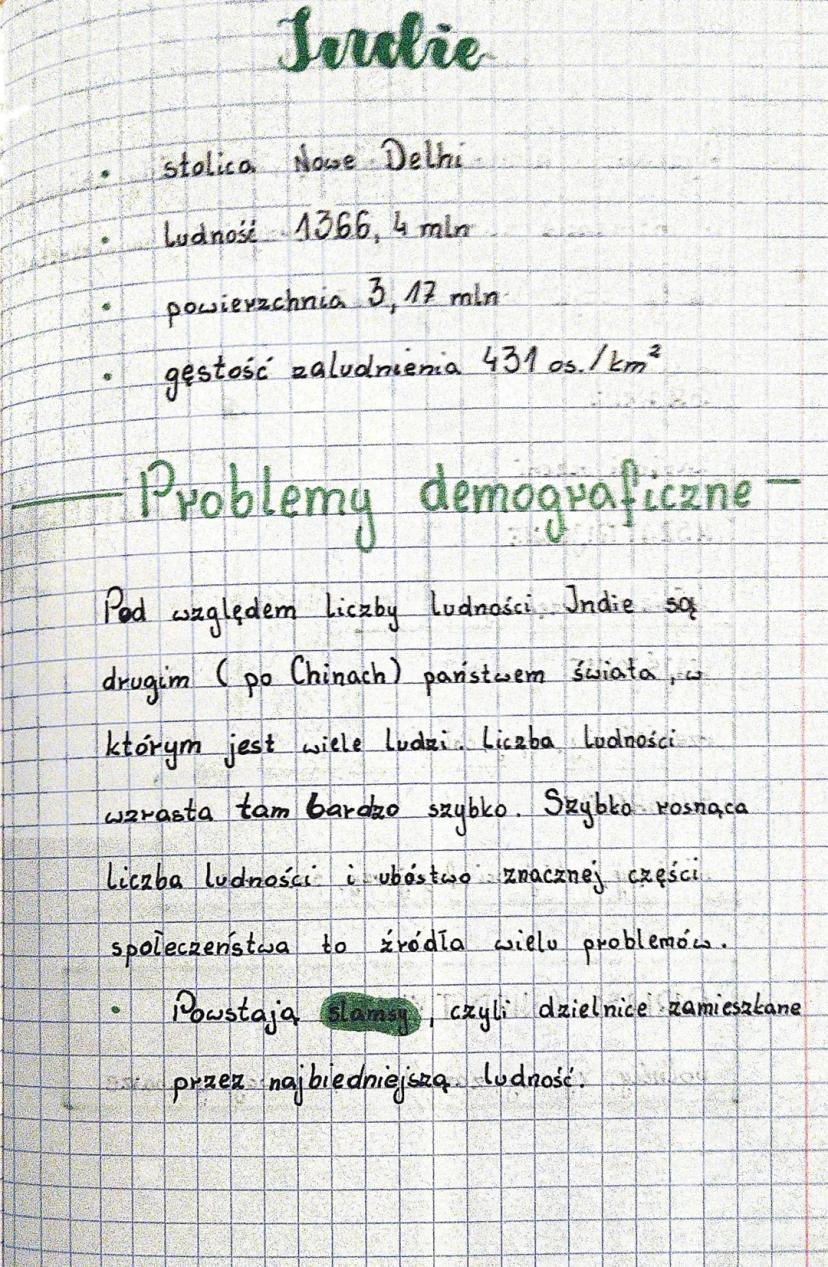 Indie
• stolica Nowe Delhi
• ludność 1366,4 mln
• powierzchnia 3,17 mln
• gęstość zaludnienia 431 os./km²
Problemy demograficzne
Pod względem liczby ludności Indie są
drugim (po Chinach) państwem świata, w
którym jest wiele ludzi. Liczba ludności
wzrasta tam bardzo szybko. Szybko rosnąca
liczba ludności i ubóstwo znacznej części
społeczeństwa to źródła wielu problemów.
• Powstają slamsy, czyli dzielnice zamieszkane
przez najbiedniejszą ludność.